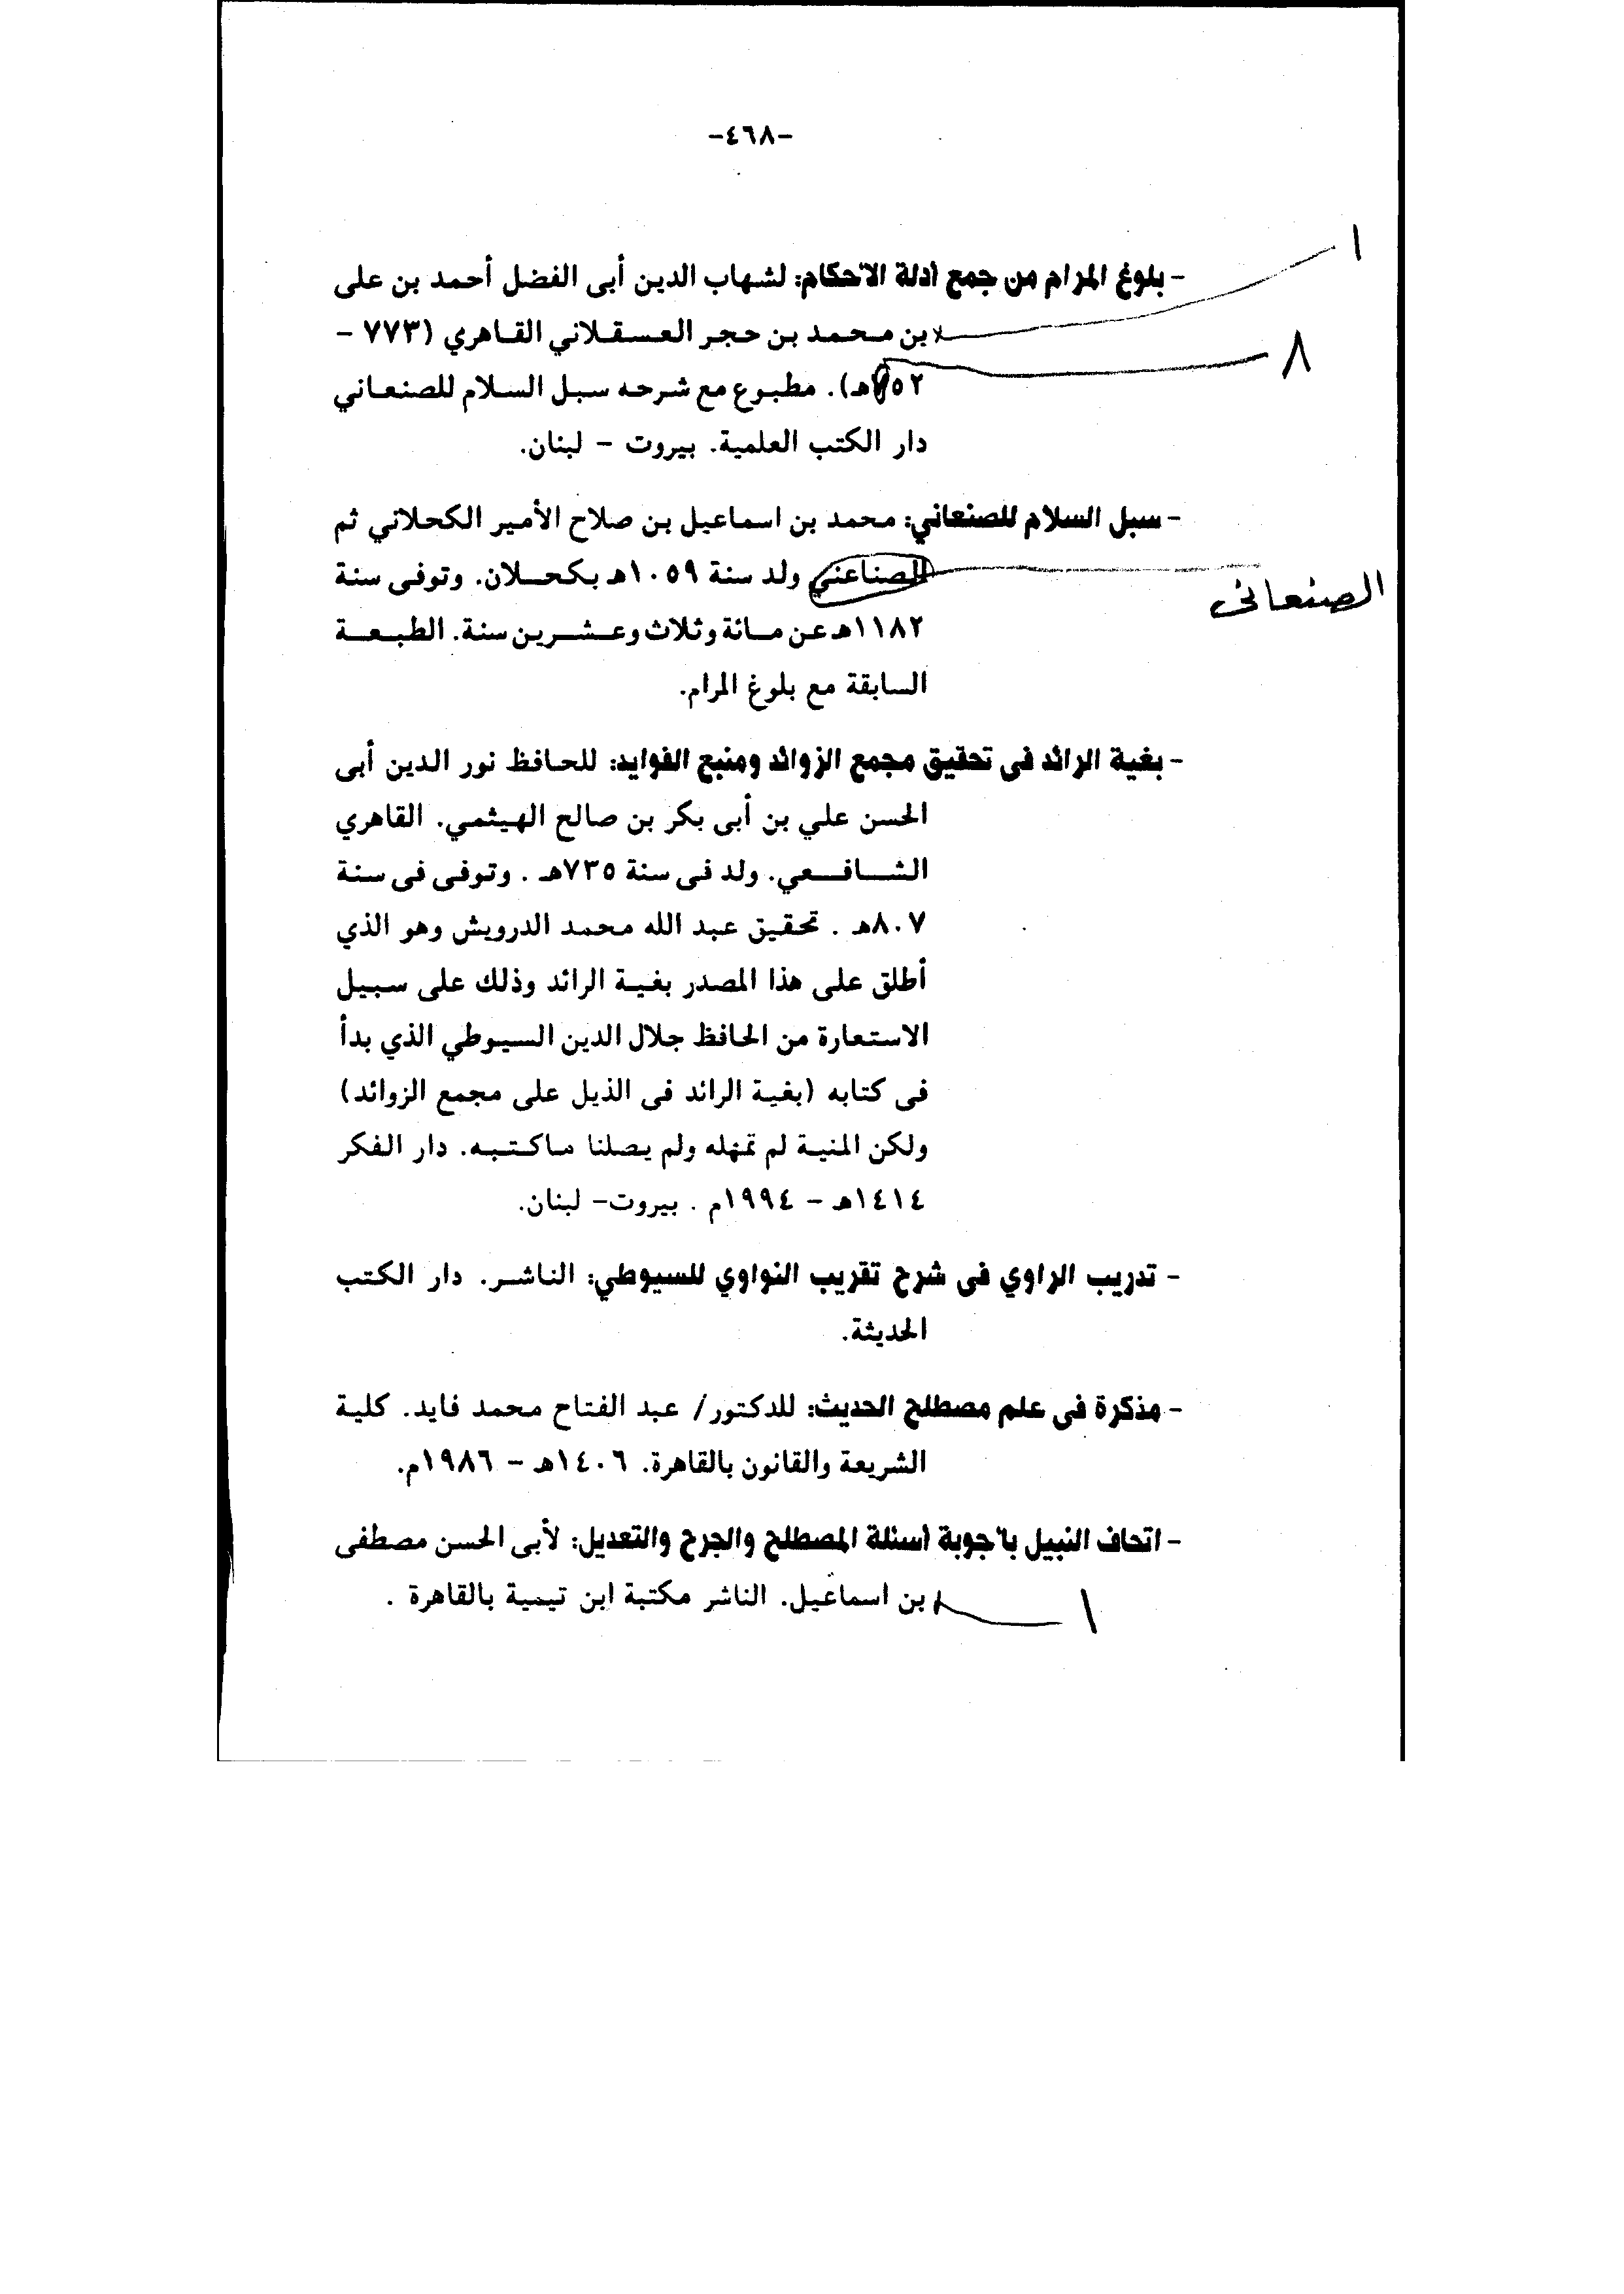 -٤٦٨-
١
- بلوغ المرام من جمع أدلة الأحكام: لشهاب الدين أبى الفضل أحمد بن على
بن محمد بن حجر العسقلاني القاهري (٧٧٣ -
٨
٧٥٢هـ). مطبوع مع شرحه سبل السلام للصنعاني
دار الكتب العلمية. بيروت - لبنان.
- سبل السلام للصنعاني: محمد بن اسماعيل بن صلاح الأمير الكحلاني ثم
الصناعني ولد سنة ١٠٥٩هـ بكحلان. وتوفى سنة
الصنعانى
١١٨٢هـ عن مائة وثلاث وعشرين سنة. الطبعة
السابقة مع بلوغ المرام.
- بغية الرائد فى تحقيق مجمع الزوائد ومنبع الفوايد: للحافظ نور الدين أبى
الحسن علي بن أبى بكر بن صالح الهيثمي. القاهري
الشافعي. ولد فى سنة ٧٣٥هـ . وتوفى فى سنة
٨٠٧هـ . تحقيق عبد الله محمد الدرويش وهو الذي
أطلق على هذا المصدر بغية الرائد وذلك على سبيل
الاستعارة من الحافظ جلال الدين السيوطي الذي بدأ
فى كتابه (بغية الرائد فى الذيل على مجمع الزوائد)
ولكن المنية لم تمهله ولم يصلنا ماكتبه. دار الفكر
١٤١٤هـ - ١٩٩٤م . بيروت- لبنان.
- تدريب الراوي فى شرح تقريب النواوي للسيوطي: الناشر. دار الكتب
الحديثة.
- مذكرة فى علم مصطلح الحديث: للدكتور/ عبد الفتاح محمد فايد. كلية
الشريعة والقانون بالقاهرة. ١٤٠٦هـ - ١٩٨٦م.
- اتحاف النبيل بأجوبة أسئلة المصطلح والجرح والتعديل: لأبى الحسن مصطفى
بن اسماعيل. الناشر مكتبة ابن تيمية بالقاهرة .
١